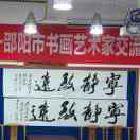 邵阳市书画艺术家交流
宁静致远
宁静致远